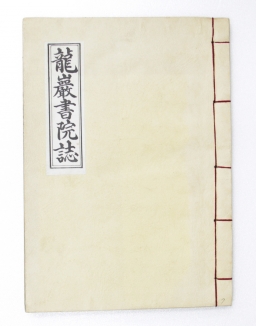 龍巖書院誌